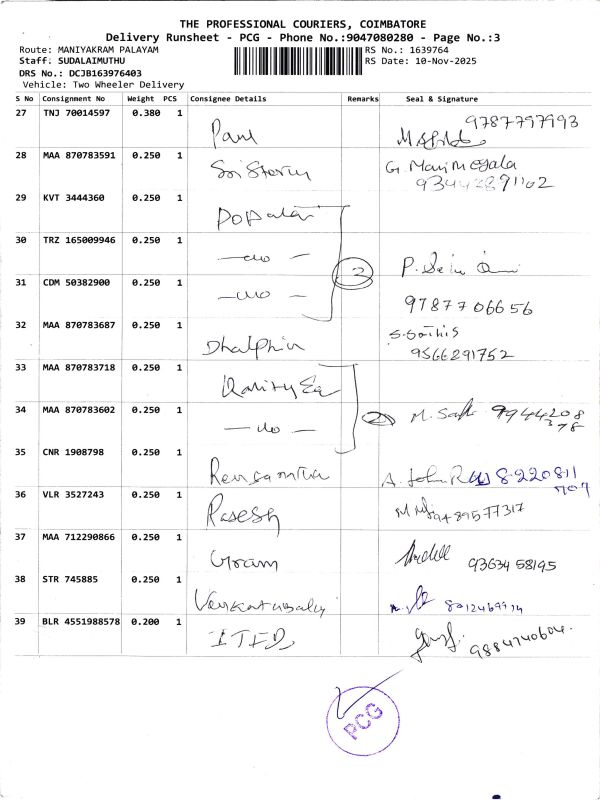 THE PROFESSIONAL COURIERS, COIMBATORE
Delivery Runsheet - PCG - Phone No.:9047080280 - Page No.:3
Route: MANIYAKRAM PALAYAM RS No.: 1639764
Staff. SUDALAIMUTHU RS Date: 10-Nov-2025
DRS No.: DCJB163976403
Vehicle: Two Wheeler Delivery
S No Consignment No Weight PCS Consignee Details Remarks Seal & Signature
27 TNJ 70014597 0.380 1 Paul 9787797993
28 MAA 870783591 0.250 1 G. Manimegala
29 KVT 3444360 0.250 1
30 TRZ 165009946 0.250 1 — do — 3
31 CDM 50382900 0.250 1 — do — 9787706656
32 MAA 870783687 0.250 1 Dhalphin 9566291752
33 MAA 870783718 0.250 1
34 MAA 870783602 0.250 1 — do — 2 9944208
378
35 CNR 1908798 0.250 1 A. John 8220811
707
36 VLR 3527243 0.250 1 Rasesh
37 MAA 712290866 0.250 1 Gram 9363458195
38 STR 745885 0.250 1
39 BLR 4551988578 0.200 1 9884740604
PCG